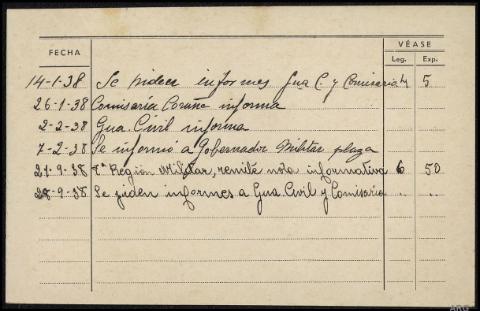 VÉASE
FECHA Leg. Exp.
14-1-38 Se piden informes Gua C. y Comisaria 4 5
26-1-38 Comisaría Coruña informa
2-2-38 Gua Civil informa
7-2-38 Se informó a Gobernador Militar plaza
21-9-38 8ª Región Militar, remite nota informativa 6 50
28-9-38 Se piden informes a Gua Civil y Comisaria " "
ARG